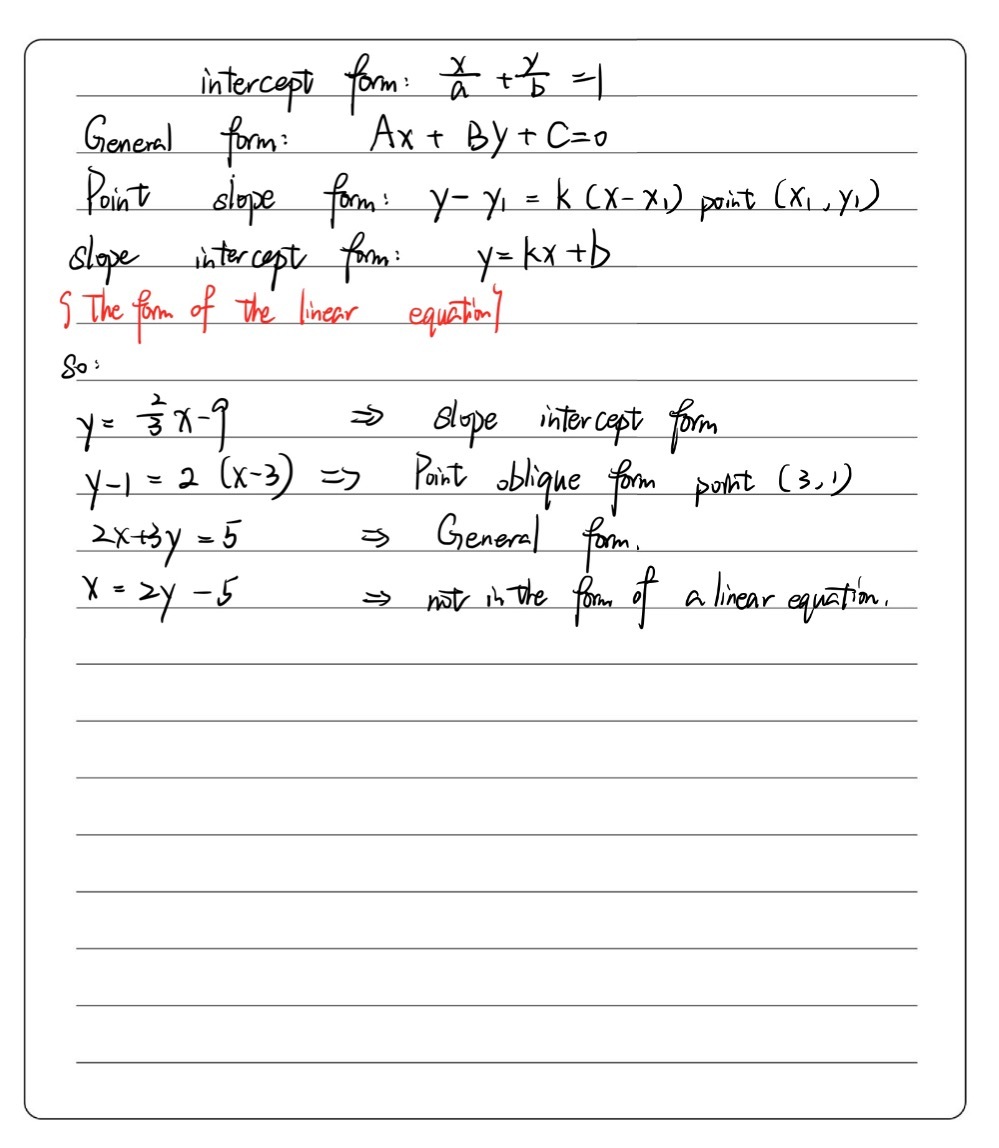 intercept form: x/a + y/b = 1
General form: Ax + By + C = 0
Point slope form: y - y₁ = k (x - x₁) point (x₁, y₁)
slope intercept form: y = kx + b
{ The form of the linear equation }
So:
y = 2/3 x - 9 ⇒ slope intercept form
y - 1 = 2 (x - 3) ⇒ Point oblique form point (3, 1)
2x + 3y = 5 ⇒ General form.
x = 2y - 5 ⇒ not in the form of a linear equation.